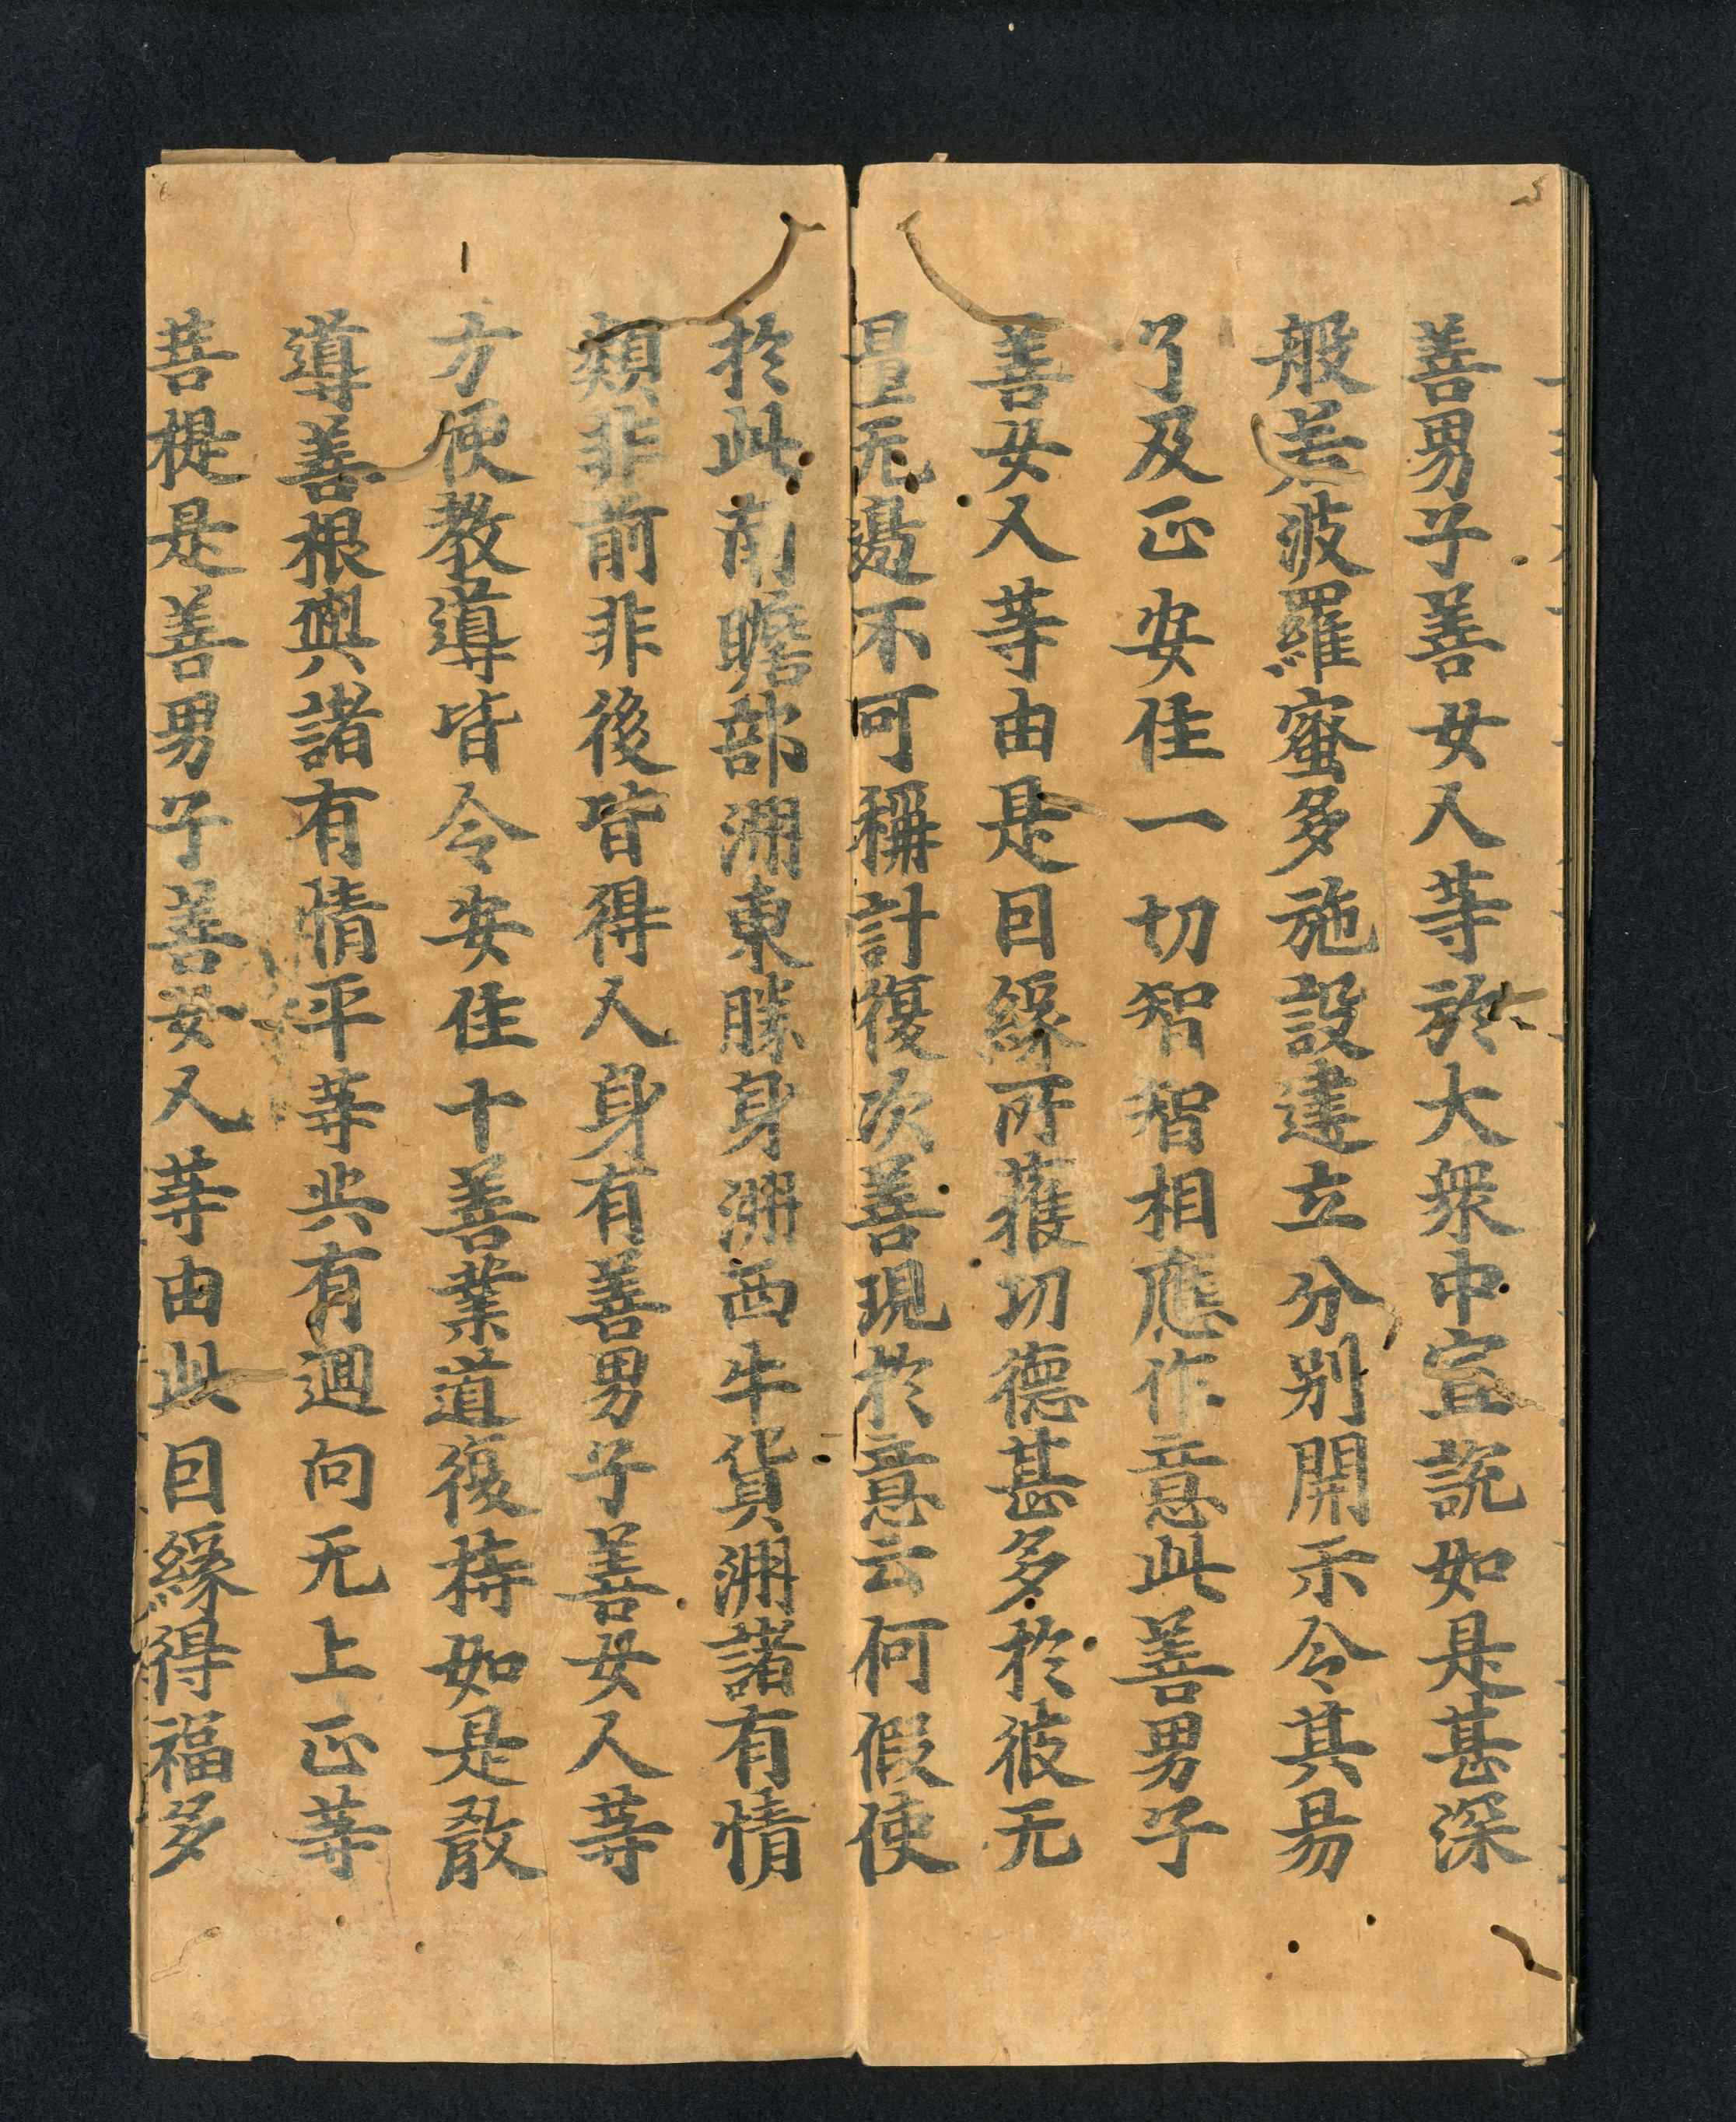 善男子善女人等於大衆中宣説如是甚深
般若波羅蜜多施設建立分別開示令其易
了及正安住一切智智相應作意此善男子
善女人等由是因緣所獲功德甚多於彼无
量无邊不可稱計復次善現於意云何假使
於此南贍部洲東勝身洲西牛貨洲諸有情
類非前非後皆得人身有善男子善女人等
方便教導皆令安住十善業道復持如是敎
導善根與諸有情平等共有迴向无上正等
菩提是善男子善女人等由此因緣得福多